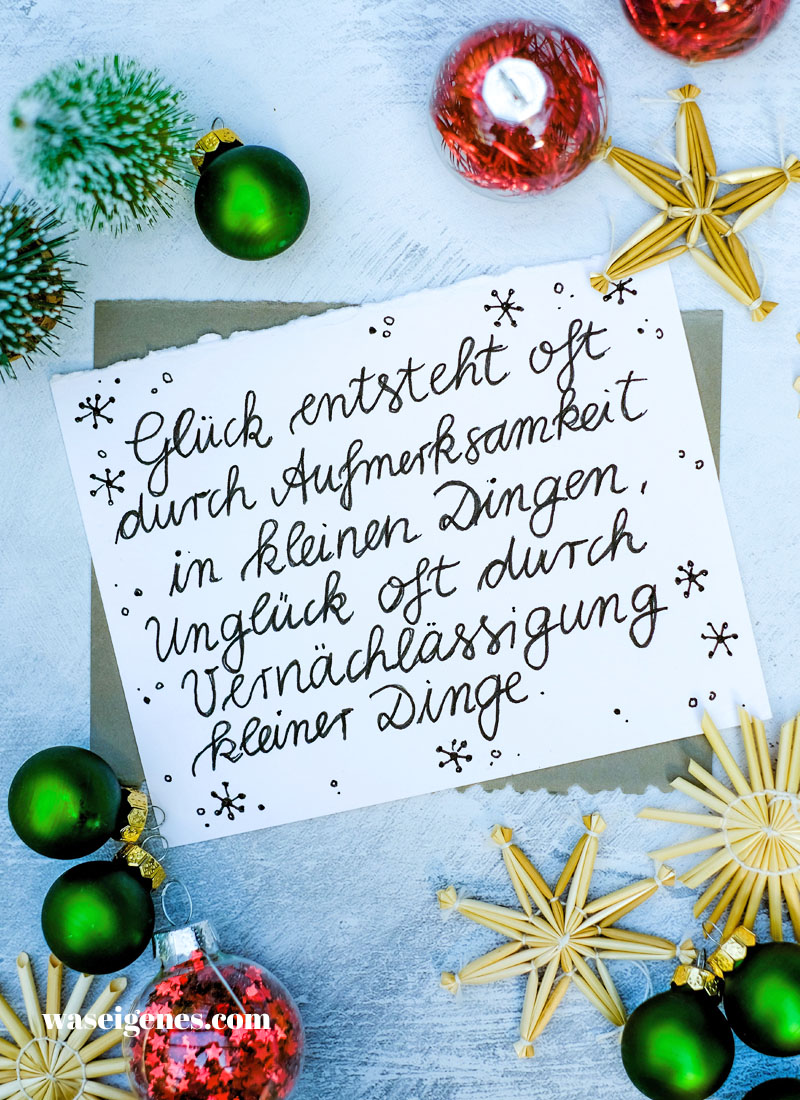 Glück entsteht oft
durch Aufmerksamkeit
in kleinen Dingen,
Unglück oft durch
Vernächlässigung
kleiner Dinge.
waseigenes.com